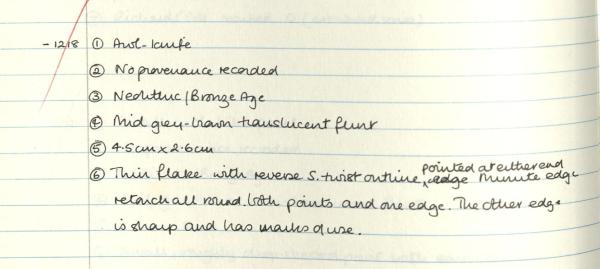 -1218 ① Awl-knife
② No provenance recorded
③ Neolithic/Bronze Age
④ Mid grey-brown translucent flint
⑤ 4.5cm x 2.6cm
⑥ Thin flake with reverse S. twist outline, pointed at either end minute edge
retouch all round both points and one edge. The other edge
is sharp and has marks of use.